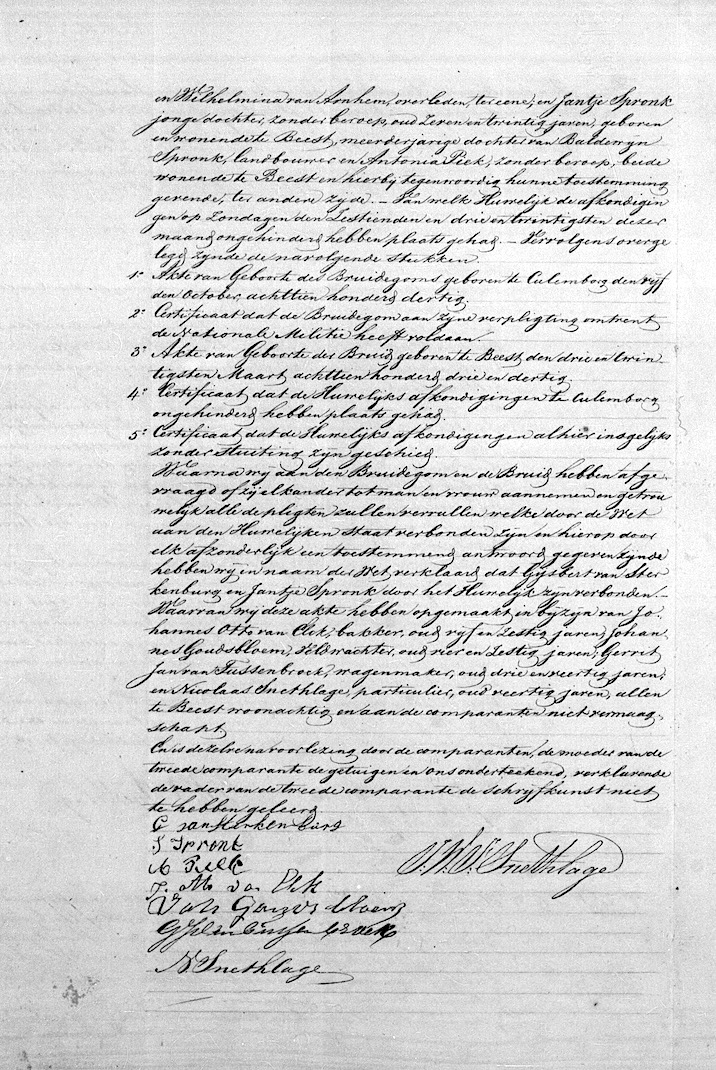 en Wilhelmina van Arnhem, overleden, ter eene, en Jantje Spronk
jonge dochter, zonder beroep, oud zeven en twintig jaren, geboren
en wonende te Beest, meerderjarige dochter van Baldewyn
Spronk, landbouwer en Antonia Piek, zonder beroep, beide
wonende te Beest en hierbij tegenwoordig hunne toestemming
gevende, ter andere zyde. – Van welk Huwelijk de afkondigin
gen op Zondagen den Zestienden en drie en twintigsten dezer
maand ongehinderd hebben plaats gehad. – Vervolgens overge
legd zynde de navolgende Stukken.
1° Akte van Geboorte des Bruidegoms geboren te Culemborg den vijf
den October, achttien honderd dertig.
2° Certificaat dat de Bruidegom aan zyne verpligting omtrent
de Nationale Militie heeft voldaan.
3° Akte van Geboorte der Bruid geboren te Beest den drie en twin
tigsten Maart achttien honderd drie en dertig.
4° Certificaat dat de Huwelijks afkondigingen te Culemborg
ongehinderd hebben plaats gehad.
5° Certificaat dat de Huwelijks afkondigingen alhier insgelijks
zonder Stuiting zyn geschied.
Waarna wij aan den Bruidegom en de Bruid hebben afge
vraagd of zij elkander tot man en vrouw aannemen en getrou
welijk alle de pligten zullen vervullen welke door de Wet
aan den Huwelijken Staat verbonden zyn en hierop door
elk afzonderlijk een toestemmend antwoord gegeven zynde
hebben wij in naam der Wet verklaard dat Gijsbert van Ster
kenburg en Jantje Spronk door het Huwelijk zyn verbonden. –
Waarvan wij deze akte hebben opgemaakt in byzyn van Jo
hannes Otto van Elck, bakker, oud vijf en zestig jaren, Johan
nes Goudsbloem, Veldwachter, oud vier en zestig jaren, Gerrit
Jan van Tussenbroek, wagenmaker, oud drie en veertig jaren,
en Nicolaas Snethlage, particulier, oud veertig jaren, allen
te Beest woonachtig en aan de comparanten niet vermaag-
schapt.
En is dezelve na voorlezing door de comparanten, de moeder van de
tweede comparante de getuigen en ons onderteekend, verklarende
de vader van de tweede comparante de schryfkunst niet
te hebben geleerd
G van Sterkenburg
J Spronk
A Piek
J. Ott. van Elk
Joh Goudsbloem
GJ van tussenbroek
N Snethlage
Snethlage